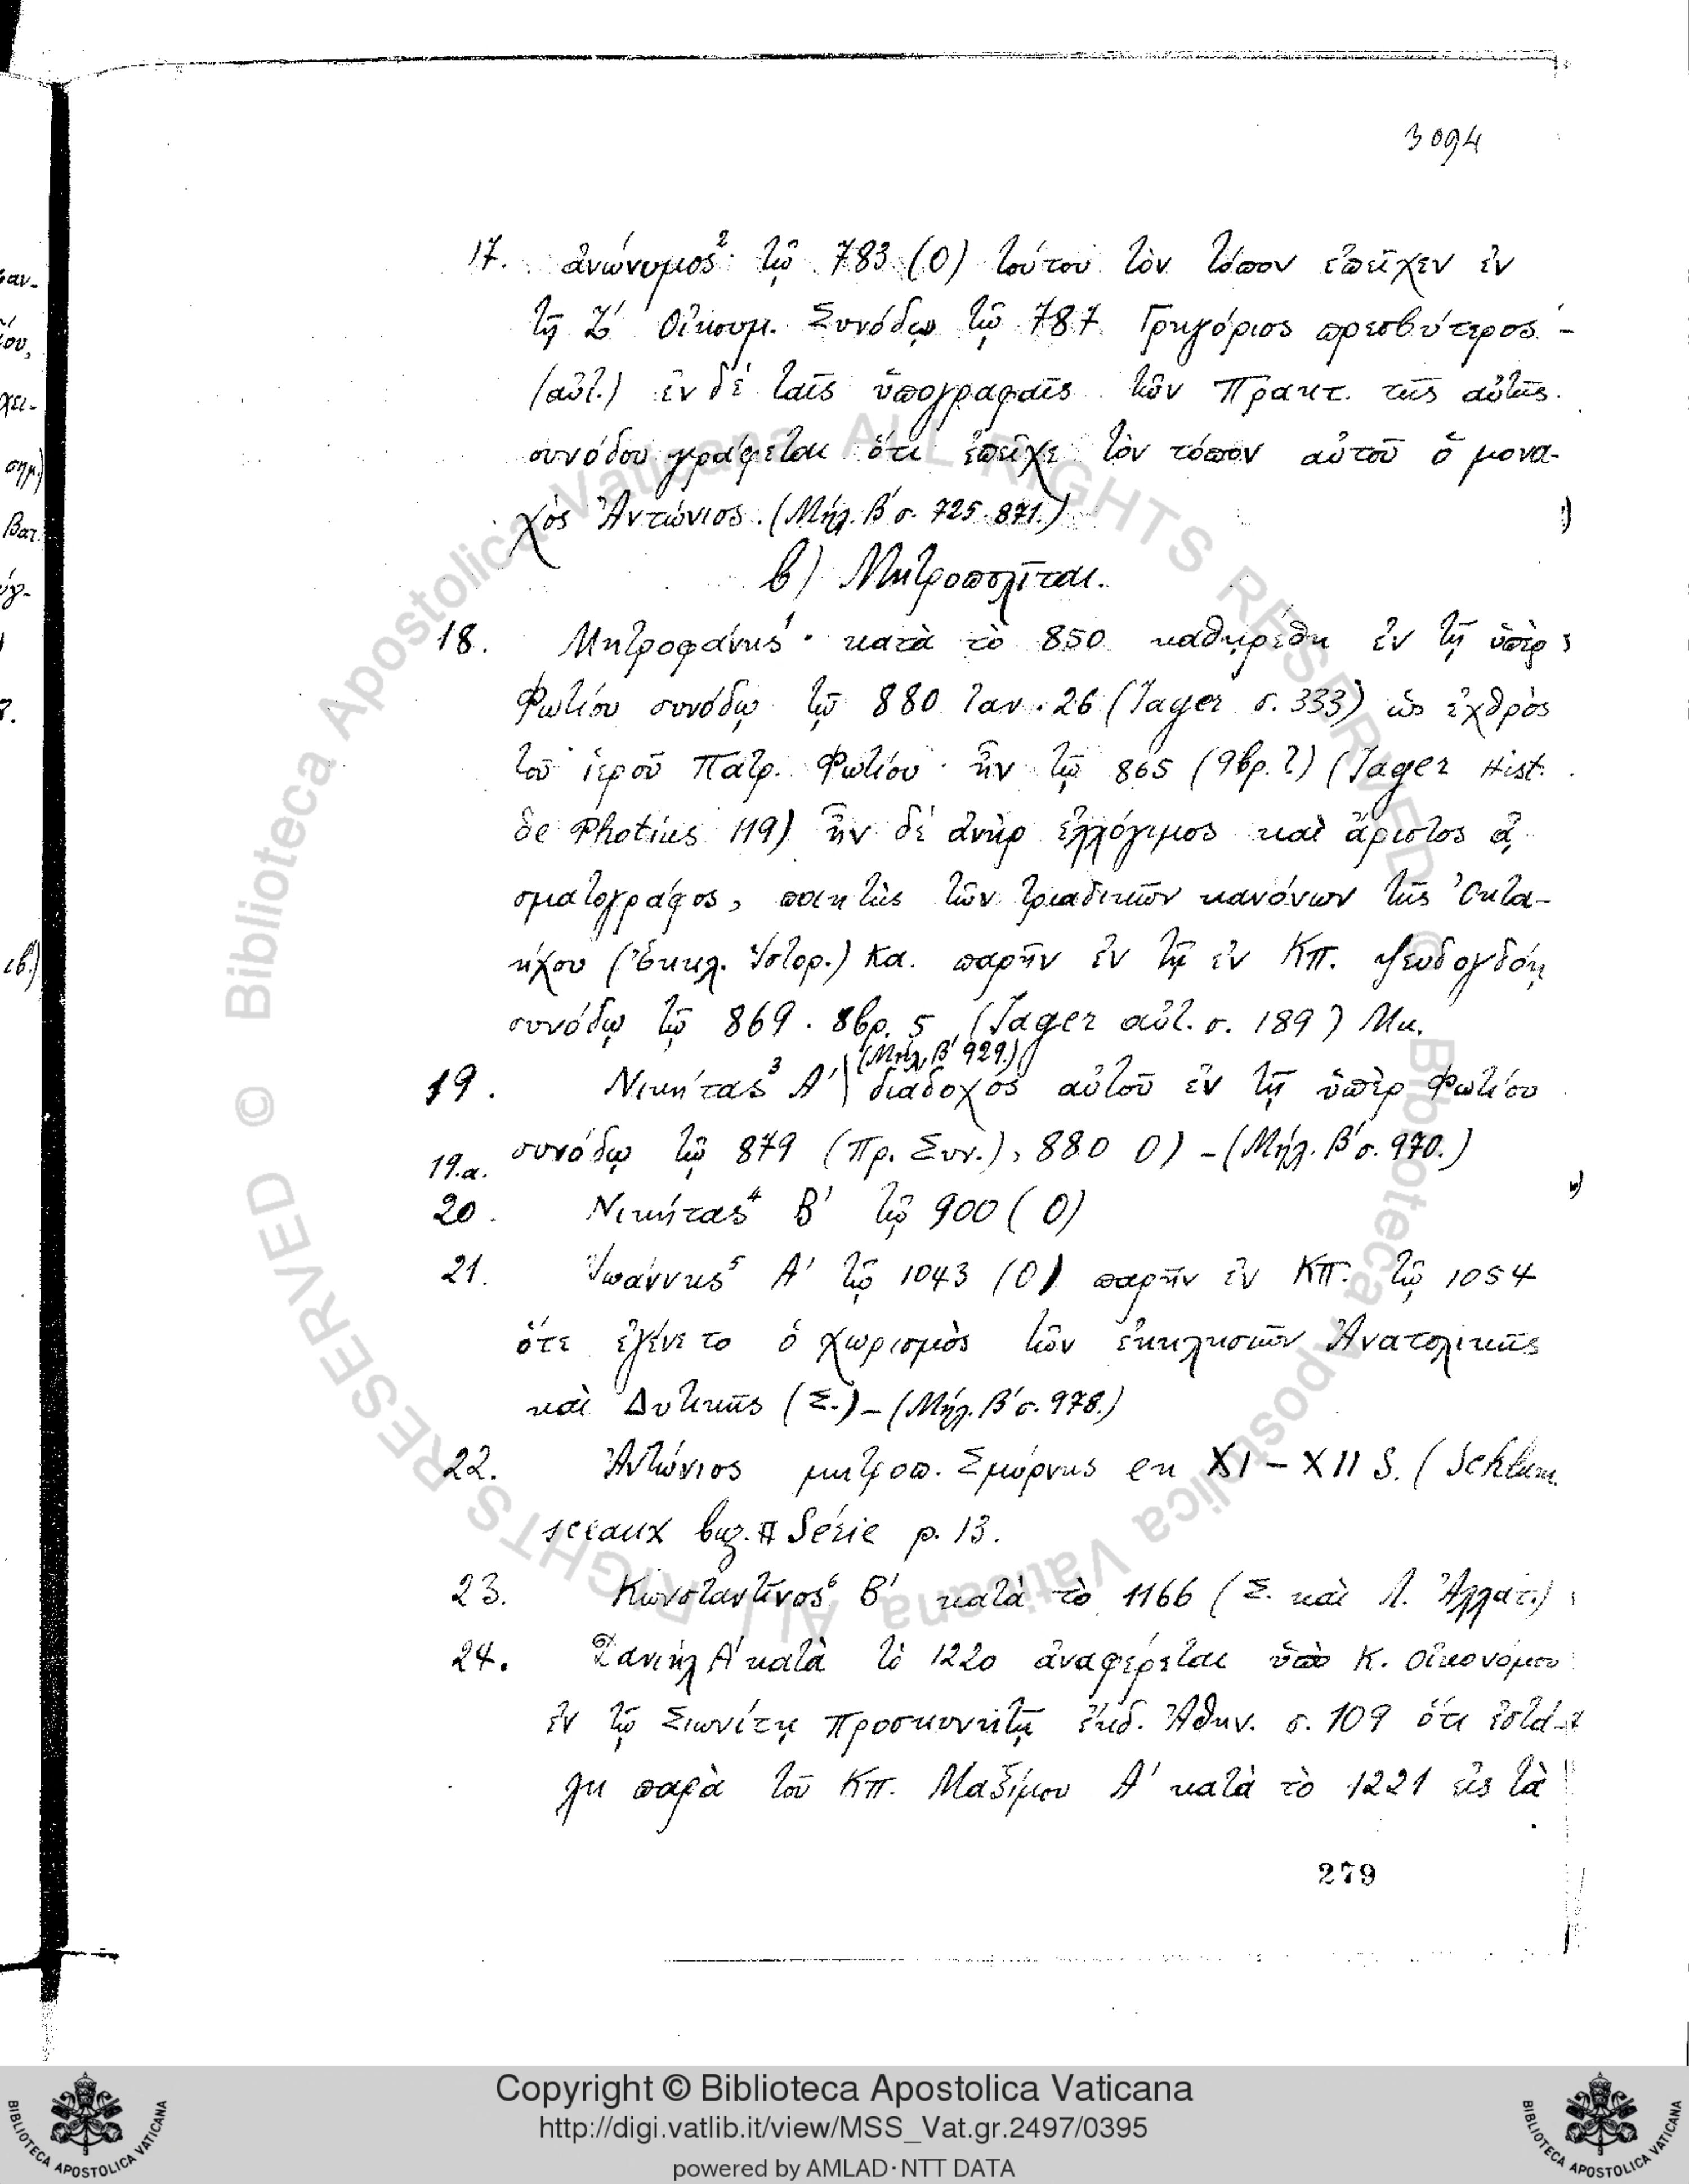 3094
17. ἀνώνυμος² τῷ 783 (O) τούτου τὸν τόπον ἐπεῖχεν ἐν
τῇ Ζ΄ Οἰκουμ. Συνόδῳ τῷ 787 Γρηγόριος πρεσβύτερος -
(αὐτ.) ἐν δὲ ταῖς ὑπογραφαῖς τῶν Πρακτ. τῆς αὐτῆς
συνόδου γράφεται ὅτι ἐπεῖχε τὸν τόπον αὐτοῦ ὁ μονα-
χὸς Ἀντώνιος. (Μήλ. Β΄ σ. 725. 871.)
β) Μητροπολῖται.
18. Μητροφάνης¹ · κατὰ τὸ 850 καθῃρέθη ἐν τῇ ὑπὲρ
Φωτίου συνόδῳ τῷ 880 Ἰαν. 26 (Jager σ. 333) ὡς ἐχθρὸς
τοῦ ἱεροῦ Πατρ. Φωτίου · ἦν τῷ 865 (9βρ. ?) (Jager Hist.
de Photius 119) ἦν δὲ ἀνὴρ ἐλλόγιμος καὶ ἄριστος ᾀ-
σματογράφος, ποιητὴς τῶν τριαδικῶν κανόνων τῆς Ὀκτα-
ήχου (Ἐκκλ. Ἱστορ.) Κα. παρῆν ἐν τῇ ἐν ΚΠ. ψευδογδόῃ
συνόδῳ τῷ 869. 8βρ. 5 (Jager αὐτ. σ. 189) Μκ.
19. Νικήτας³ Α΄ (Μήλ. Β΄ 929.) διάδοχος αὐτοῦ ἐν τῇ ὑπὲρ Φωτίου
συνόδῳ τῷ 879 (Πρ. Συν.), 880 O) - (Μήλ. Β΄ σ. 970.)
19.α.
20. Νικήτας⁴ Β΄ τῷ 900 (O)
21. Ἰωάννης⁵ Α΄ τῷ 1043 (O) παρῆν ἐν ΚΠ. τῷ 1054
ὅτε ἐγένετο ὁ χωρισμὸς τῶν ἐκκλησιῶν Ἀνατολικῆς
καὶ Δυτικῆς (Σ.) - (Μήλ. Β΄ σ. 978.)
22. Ἀντώνιος μητροπ. Σμύρνης en XI - XII S. (Schlum.
sceaux byz. II Série p. 13.
23. Κωνσταντῖνος⁶ Β΄ κατὰ τὸ 1166 (Σ. καὶ Λ. Ἀλλάτ.)
24. Δανιὴλ Α΄ κατὰ τὸ 1220 ἀναφέρεται ὑπὸ Κ. Οἰκονόμου
ἐν τῷ Σιωνίτῃ Προσκυνητῇ ἐκδ. Ἀθην. σ. 109 ὅτι ἐστά-
λη παρὰ τοῦ ΚΠ. Μαξίμου Α΄ κατὰ τὸ 1221 εἰς τὰ
279
© Biblioteca Apostolica Vaticana ALL RIGHTS RESERVED
Copyright © Biblioteca Apostolica Vaticana
http://digi.vatlib.it/view/MSS_Vat.gr.2497/0395
powered by AMLAD·NTT DATA
BIBLIOTECA APOSTOLICA VATICANA
BIBLIOTECA APOSTOLICA VATICANA